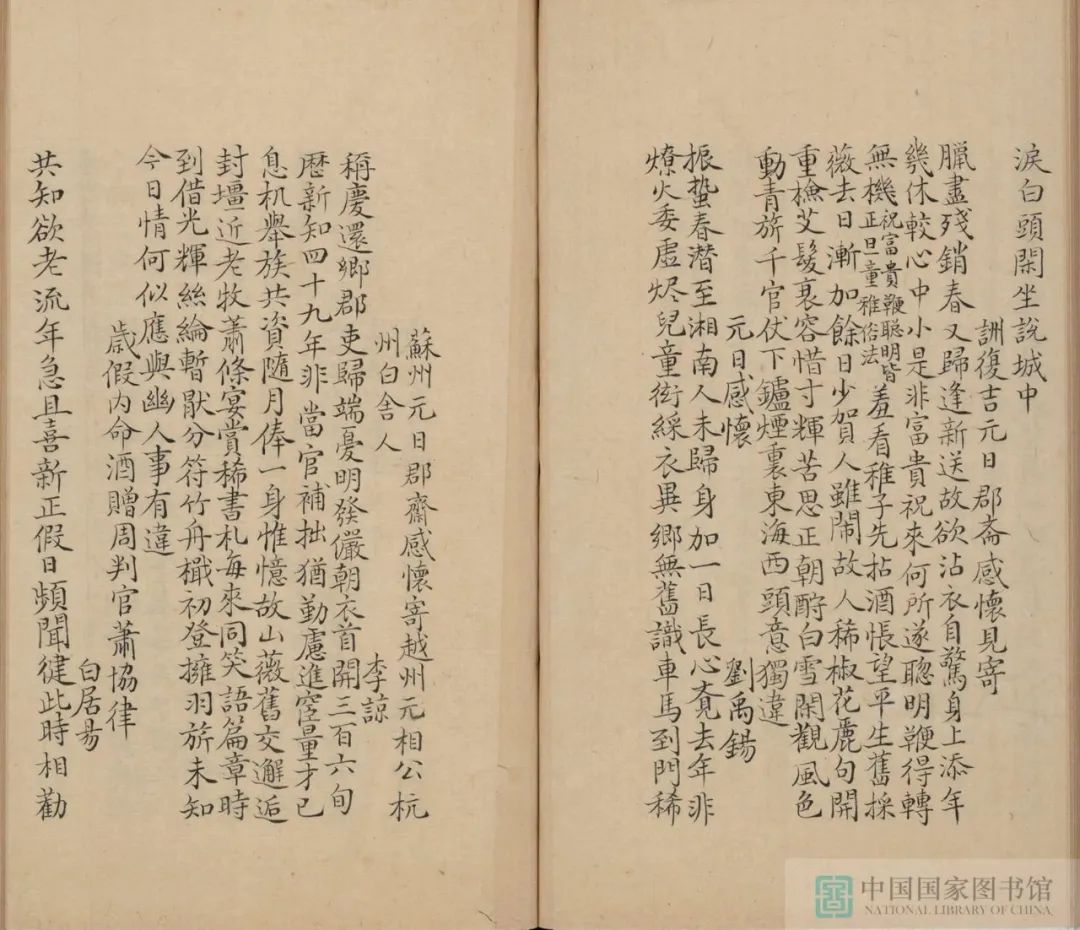 淚白頭閑坐說城中
詶復吉元日郡斋感懷見寄
臘盡殘銷春又歸逢新送故欲沾衣自驚身上添年
幾休較心中小是非富貴祝來何所遂聰明鞭得轉
無機祝富貴鞭聰明皆正旦童稚俗法羞看稚子先拈酒悵望平生舊採
薇去日漸加餘日少賀人雖鬧故人稀椒花麗句開
重檢艾髮衰容惜寸輝苦思正朝酧白雪閑觀風色
動青旂千官伏下鑪煙裏東海西頭意獨違
元日感懷
劉禹錫
振蟄春潛至湘南人未歸身加一日長心覔去年非
燎火委虛烬兒童衒綵衣異鄉無舊識車馬到門稀
蘇州元日郡齋感懷寄越州元相公杭
州白舍人
李諒
稱慶還鄉郡吏歸端憂明發儼朝衣首開三百六旬
歷新知四十九年非當官補拙猶勤慮進窒量才已
息机舉族共資隨月俸一身惟憶故山薇舊交邂逅
封壃近老牧蕭條宴賞稀書札每來同笑語篇章時
到借光輝絲綸暫猒分符竹舟檝初登擁羽旂未知
今日情何似應與幽人事有違
歲假內命酒贈周判官蕭協律
白居昜
共知欲老流年急且喜新正假日頻聞健此時相勸
中国国家图书馆
NATIONAL LIBRARY OF CHINA